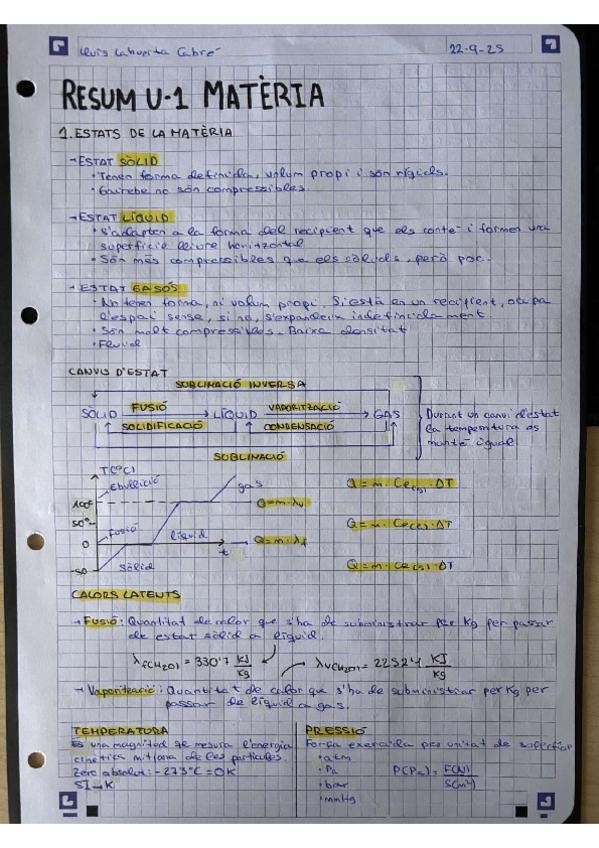 Lluis Lahuerta Cabré
22-9-25
RESUM U-1 MATÈRIA
1. ESTATS DE LA MATÈRIA
→ ESTAT SÒLID
• Tenen forma definida, volum propi i són rígids.
• Gairebe no són compressibles.
→ ESTAT LÍQUID
• S'adapten a la forma del recipient que els conté i formen una
superfície lliure horizontal
• Són més compressibles que els sòlids, però poc.
→ ESTAT GASÓS
• No tenen forma, ni volum propi. Si està en un recipient, ocupa
l'espai sense, si no, s'expandeix indefinidament.
• Són molt compressibles. Baixa densitat
• Fluid
CANVIS D'ESTAT
SUBLIMACIÓ INVERSA
SÒLID FUSIÓ LÍQUID VAPORITZACIÓ GAS
SOLIDIFICACIÓ CONDENSACIÓ
SUBLIMACIÓ
Durant un canvi d'estat
la temperatura es
manté igual
T(ºC)
Ebullició
gas
100º
50º
fusió
0
líquid
t
-50
sòlid
Q = m · λv
Q = m · λf
Q = m · Ce(g) · ΔT
Q = m · Ce(l) · ΔT
Q = m · Ce(s) · ΔT
CALORS LATENTS
→ Fusió: Quantitat de calor que s'ha de subministrar per Kg per passar
de estat sòlid a líquid.
λf(H2O) = 330'7 KJ/Kg
λv(H2O) = 2252'4 KJ/Kg
→ Vaporització: Quantitat de calor que s'ha de subministrar per Kg per
passar de líquid a gas.
TEMPERATURA
És una magnitud qe mesura l'energia
cinètica mitjana de les partícules.
Zero absolut: -273ºC = 0K
SI → K
PRESSIÓ
Força exercida per unitat de superfície
• atm
• Pa
• bar
• mmHg
P(Pa) = F(N)/S(m²)